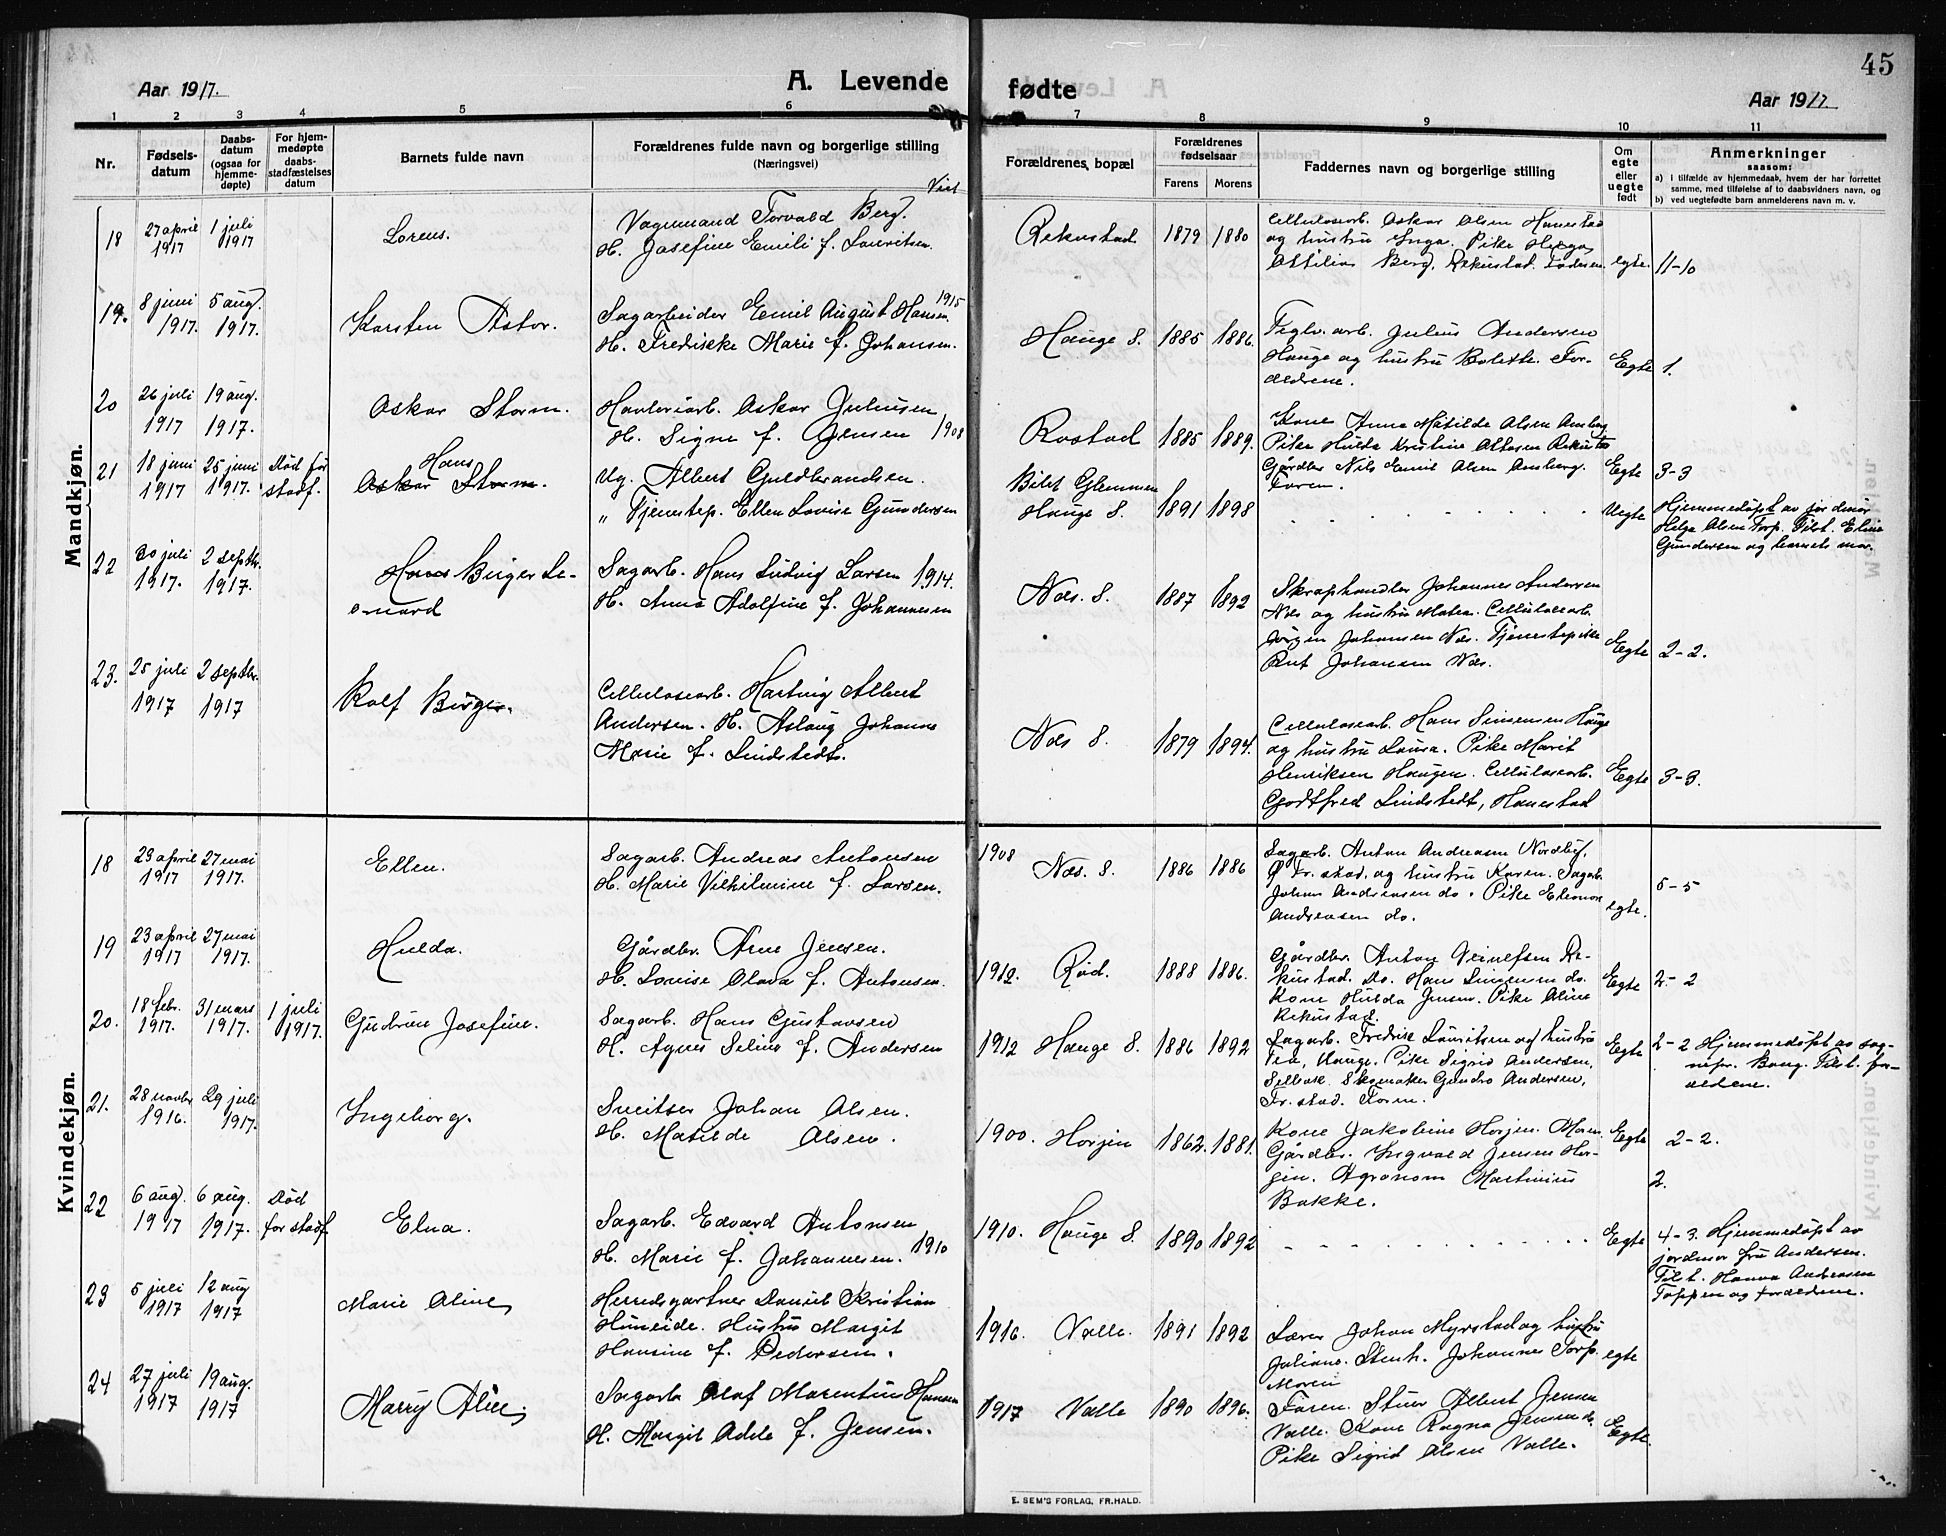 45
Aar 1917.
A. Levende
fødte
Aar 1917.
1 2 3 4 5 6 7 8 9 10 11
Nr.
Fødsels-
datum
Daabs-
datum
(ogsaa for
hjemme-
døpte)
For hjem-
medøpte
daabs-
stadfæstelses
datum
Barnets fulde navn
Forældrenes fulde navn og borgerlige stilling
(Næringsvei)
Viet
Forældrenes bopæl
Forældrenes
fødselsaar
Farens
Morens
Faddernes navn og borgerlige stilling
Om
egte
eller
uegte
født
Anmerkninger
saasom:
a) i tilfælde av hjemmedaab, hvem der har forrettet
samme, med tilføielse af to daabsvidners navn, og
b) ved uegtefødte barn anmelderens navn m. v.
Mandkjøn.
18
27 april
1917
1 juli
1917
Lorens.
Vognmand Torvald Berg.
H. Josefine Emili f. Lauritsen.
Rekustad
1879
1880
Cellulosearb. Oskar Olsen Hanestad
og hustru Inga. Pike Helga
Ottilia Berg, Rekustad. Faderen.
egte.
11-10
19.
8 juni
1917.
5 aug.
1917.
Karsten Astor.
Sagarbeider Emil August Hansen.
1915
H. Fredrikke Marie f. Johansen.
Hauge S.
1885
1886.
Teglv. arb. Julius Andersen
Hauge og hustru Bolette. For-
ældrene.
Egte
1.
20
26 juli
1917
19 aug.
1917.
Oskar Storm.
Havleriarb. Oskar Juliussen
H. Signe f. Jensen 1908
Rostad
1885
1889.
Kone Anna Matilde Olsen
Pike Hulda Kristine
Gårdbr. Nils Emil Olsen
Faren.
Egte
3-3
21
18 juni
1917
25 juni
1917.
Død før
stadf.
Hans
Oskar Storm.
Ug. Albert Guldbrandsen.
" Tjenestep. Ellen Lovise Gundersen
Bilet Glemmen
Hauge S.
1891
1898
Uegte
Hjemmedøpt av jordmor
Helga Olsen Torp. Tilst. Eline
Gundersen og barnets mor.
22
30 juli
1917.
2 septbr.
1917.
Hans Birger Le-
onard
Sagarb. Hans Ludvig Larsen 1914.
H. Anna Adolfine f. Johannesen
Næs. S.
1887
1892
Skraphandler Johannes Andersen
Næs og hustru Maten. Cellulosearb.
Jørgen Johansen Næs. Tjenestepike
Rut Johansen Næs.
Egte
2-2.
23.
25 juli
1917
2 septbr.
1917
Rolf Birger.
Cellulosearb. Hartvig Albert
Andersen. H. Aslaug Johanne
Marie f. Lindstedt.
Næs S.
1879
1894.
Cellulosearb. Hans Simensen Hauge
og hustru Laura. Pike Marit
Henriksen Haugen. Cellulosearb.
Godtfred Lindstedt, Hanestad
Egte
3-3.
Kvindekjøn.
18
23 april
1917
27 mai
1917.
Ellen.
Sagarb. Andreas Antonsen
H. Marie Vilhilmine f. Larsen.
1908
Næs. S.
1886
1886
Sagarb. Anton Andreasen Nordby,
Fr. stad. og hustru Karen. Sagarb.
Johan Andreasen do. Pike Eleonor
Andreasen do.
egte.
5-5
19
23 april
1917
27 mai
1917.
Hulda.
Gårdbr. Arne Jensen.
H. Lovise Olava f. Antonsen.
1912.
Rød.
1888
1886.
Gårdbr. Anton Re-
kustad. Do. Hans Simensen do.
Kone Hulda Jensen. Pike Aline
Rekustad.
Egte
2-2
20.
18 febr.
1917.
31 mars
1917.
1 juli
1917.
Gudrun Josefine.
Sagarb. Hans Gustavsen
H. Agnes Selina f. Andersen
1912
Hauge S.
1886
1892
Sagarb. Fredrik Lauritsen og hustru
Tea, Hauge. Pike Sigrid Andersen,
Selbak. Skomaker Gundro Andersen,
Fr. stad. Faren.
Egte
2-2 Hjemmedøpt av sog-
nepr. Bang. Tilst. for-
ældrene.
21.
28 novbr
1916.
29 juli
1917.
Ingeborg.
Sveitser Johan Olsen.
H. Matilde Olsen.
1900.
Horgen
1862.
1881.
Kone Jakobine Horgen. Moren.
Gårdbr. Ingvald Jensen Hor-
gen. Agronom Martinius
Bakke.
Egte
2-2.
2.
22
6 aug.
1917
6 aug.
1917.
Død
før stadf
Elna.
Sagarb. Edvard Antonsen
H. Marie f. Johannesen. 1910
1910.
Hauge S.
1890
1892
Egte
4-3. Hjemmedøpt av
jordmor fru Andersen.
Tilst. Hanna Andreasen
Toppen og forældrene.
23
5 juli
1917
12 aug
1917
Marie Aline
Herredsgartner Daniel Kristian
Huneide. Hustru Margit
Hansine f. Pedersen.
1916.
Valle.
1891
1892
Lærer Johan Myrstad og hustru
Juliane. Stenh. Johannes Torp.
Moren
egte
24
27 juli
1917
19 aug.
1917
Marry Alice.
Sagarb Olaf Marentin Hansen
H. Margit Adele f. Jensen.
1917
Valle
1890
1896.
Faren. Stuer Albert Jensen
Valle. Kone Ragna Jensen do.
Pike Sigrid Olsen Valle.
Egte.
E. SEM'S FORLAG, FR.HALD.